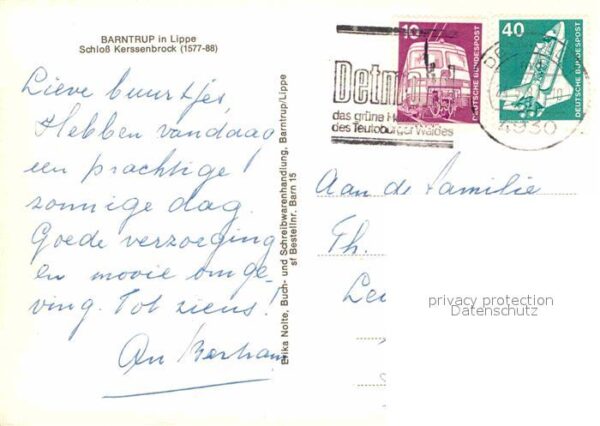 BARNTRUP in Lippe
Schloß Kerssenbrock (1577-88)
Lieve buurtjes,
Hebben vandaag
een prachtige
zonnige dag.
Goede verzoeging
en mooie omge-
ving. Tot ziens!
Erika Nolte, Buch- und Schreibwarenhandlung, Barntrup/Lippe
sf Bestellnr. Barn 15
Detm
das grüne H
des Teutoburger Waldes
10
DEUTSCHE BUNDESPOST
40
DEUTSCHE BUNDESPOST
4930
Aan de Familie
Th.
privacy protection
Datenschutz